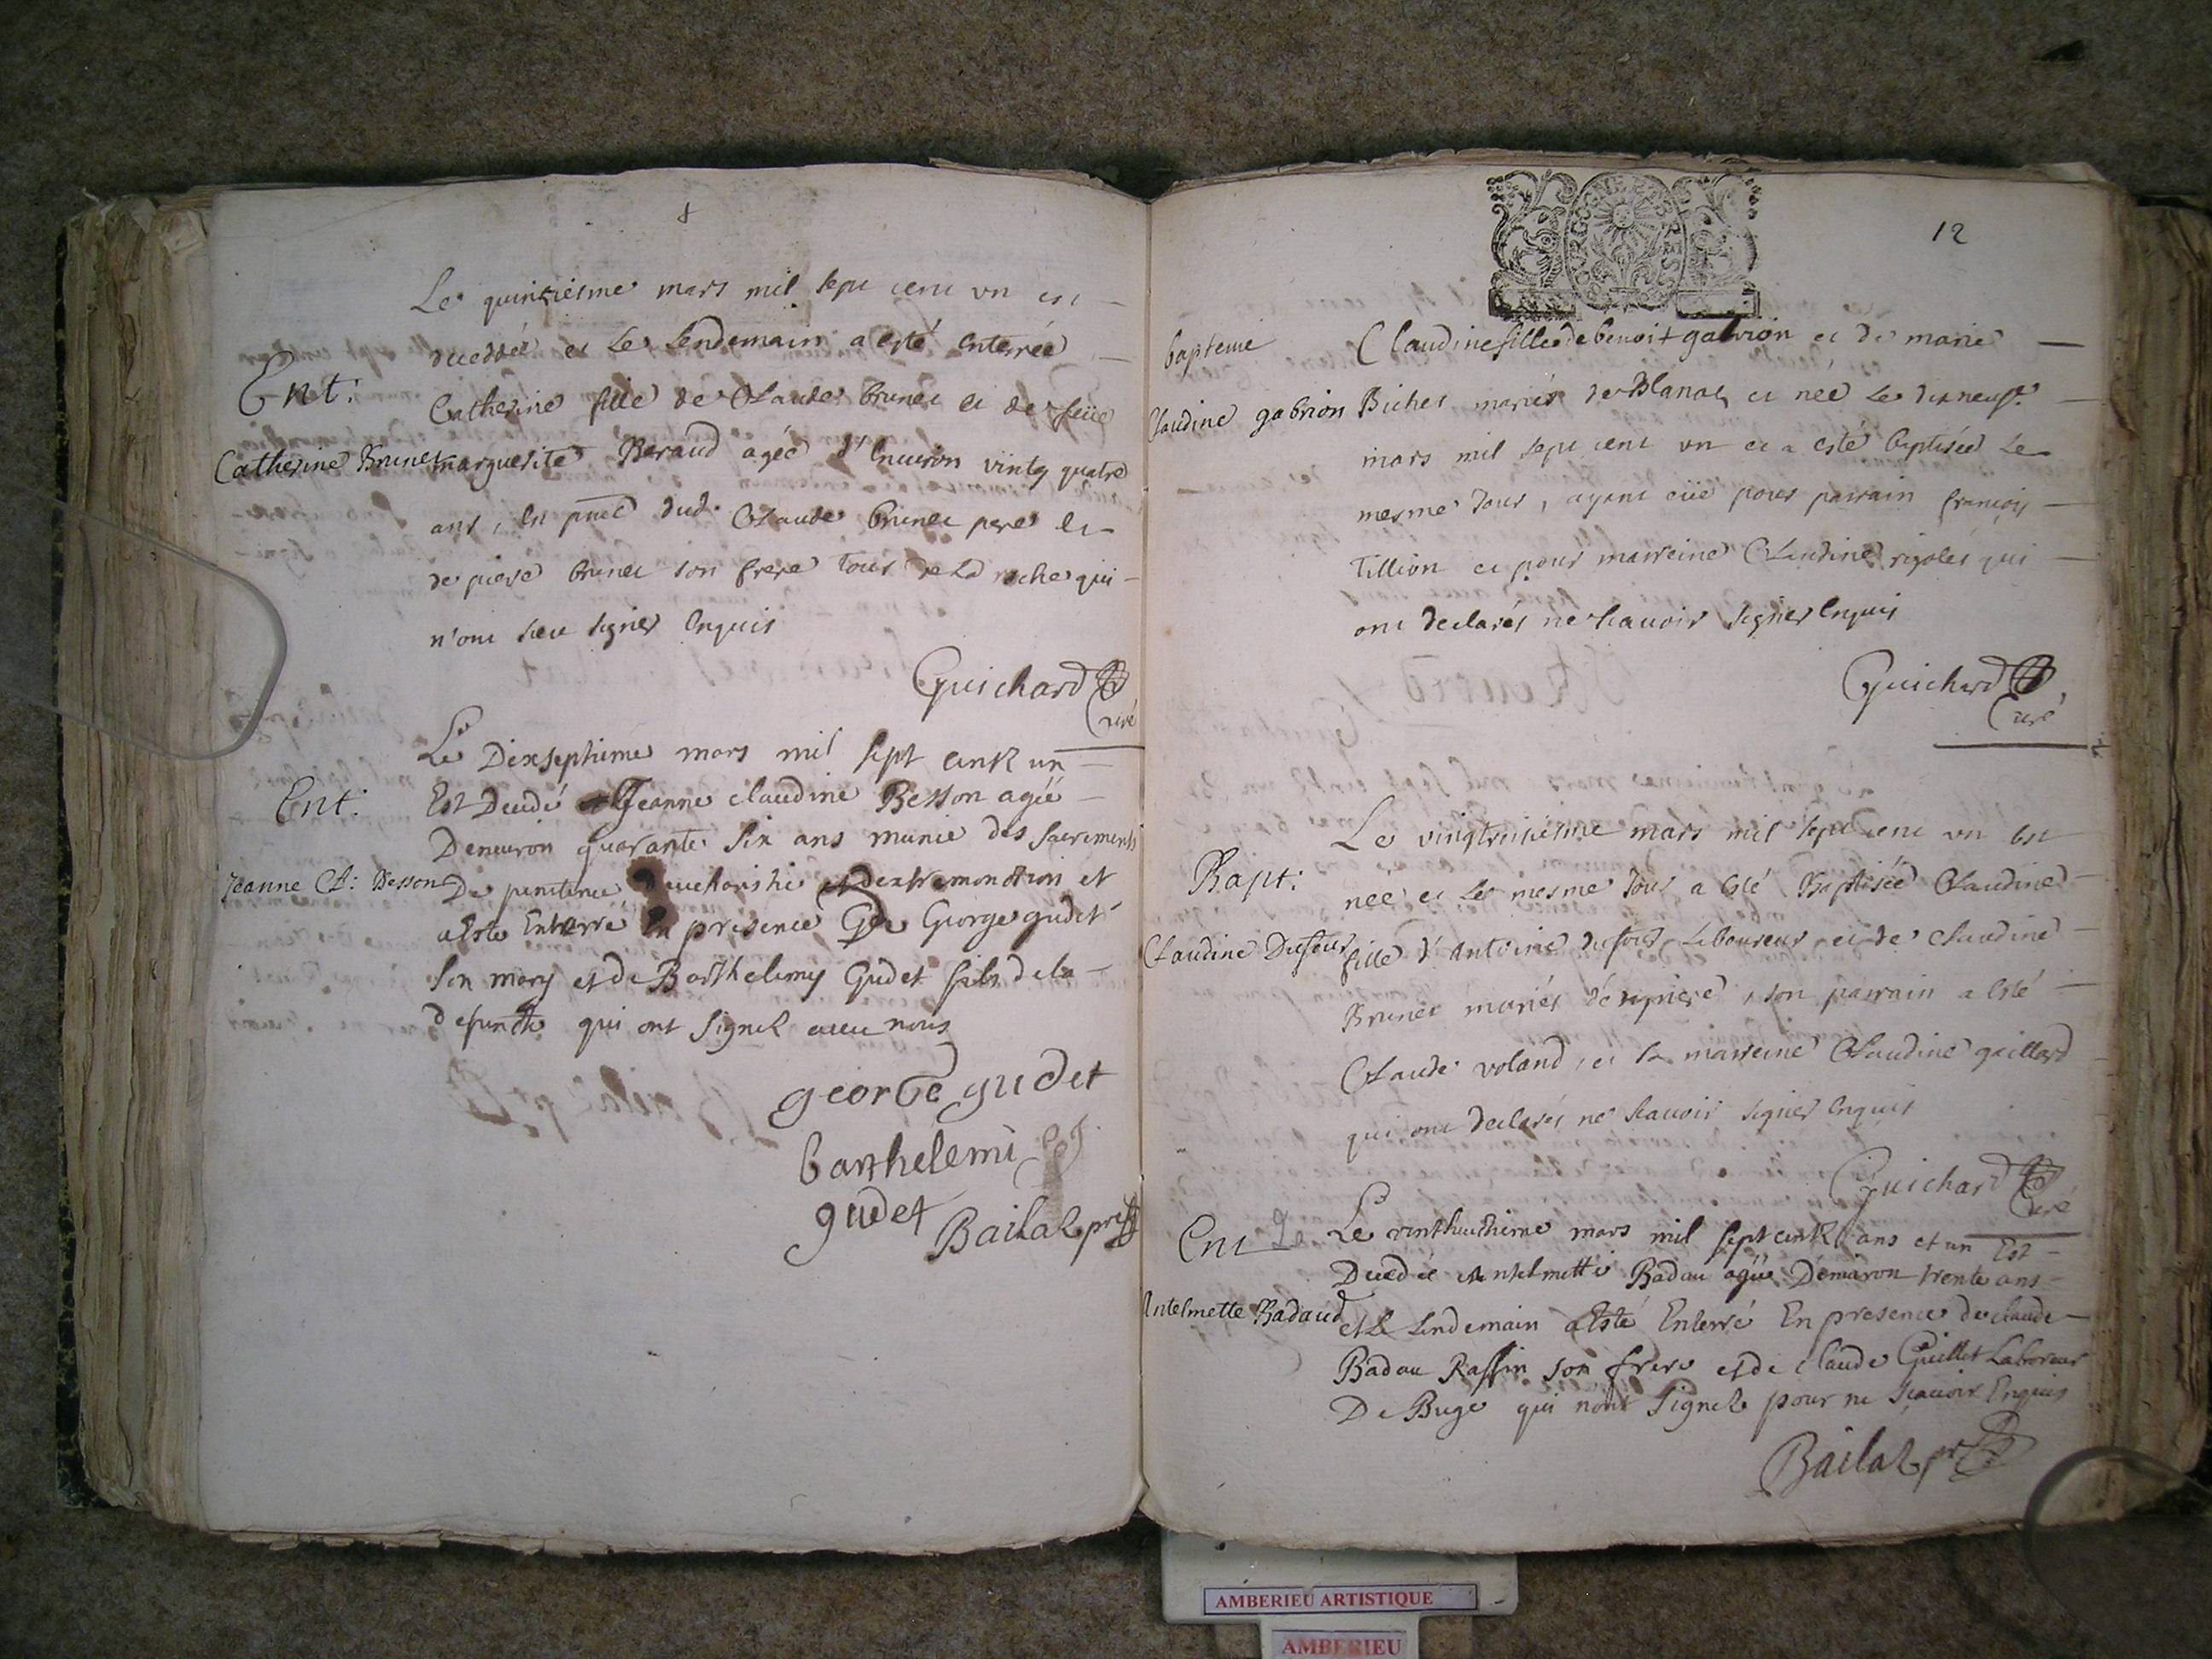 Le quinziesme mars mil sept cent vn est
decedée et le lendemain a esté enterrée
Ent:
Catherine fille de Claude brunet et de feüe
Catherine Brunet
marguerite Beraud agée d'enuiron vintg quatre
ans, en pnce dud. Claude brunet pere et
de piere brunet son frere tous de La roche qui
n'ont sceu signer enquis
Guichard
Curé
Le Dixseptieme mars mil sept centz un
Ent:
Est Decedé Jeanne claudine Besson agée
Denuiron quarante six ans munie des sacrements
Jeanne Cl: Besson
De penitence deucharistie et dextremonction et
a Este Enterre En presence De George gudet
son mary et de Barthelemy Gudet fils de la
defuncte qui ont signez auec nous
george gudet
barthelemi
gudet
Bailaz pre
12
bapteme
Claudine fille de benoit gabrion et de marie
Claudine gabrion
Biches mariés de Blanaz est née le dixneufe
mars mil sept cent vn et a esté baptisée le
mesme Jour, ayant eüe pour parrain françois
Tillion et pour marreine Claudine rigolet qui
ont declarés ne scauoir signer enquis
Guichard
Curé
Le vingtruisiesme mars mil sept cent vn est
Bapt:
née et le mesme Jour a esté Baptisée Claudine
Claudine Dufour
fille d'antoine dufour laboureur et de claudine
Brunet mariés , son parrain a esté
Claude voland, et la marreine Claudine gaillard
qui ont declarés ne scauoir signer enquis
Guichard
Curé
Ent
Le
Le vinthuictieme mars mil sept centz ans et un Est
Decedée Antelmette Badau agée Demiron trente ans
Antelmette Badaud
et le lendemain a Esté Enterré En presence de claude
Badau Raffin son frere et de claude Guillet Laboreur
De Buge qui n'ont signez pour ne scauoir Enquis
Bailaz pre
AMBERIEU ARTISTIQUE
AMBERIEU